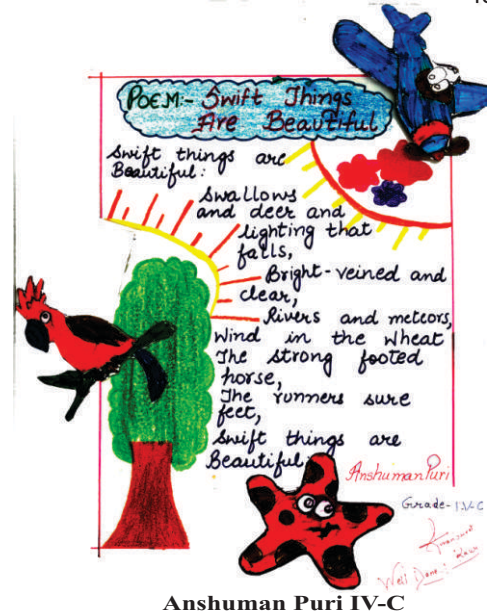 POEM:- Swift Things
Are Beautiful
Swift things are
Beautiful:
Swallows
and deer and
lighting that
falls,
Bright-veined and
clear,
Rivers and meteors,
Wind in the wheat
The strong footed
horse,
The runners sure
feet,
Swift things are
Beautiful.
Anshuman Puri
Grade-IV-C
Well Done!
Anshuman Puri IV-C